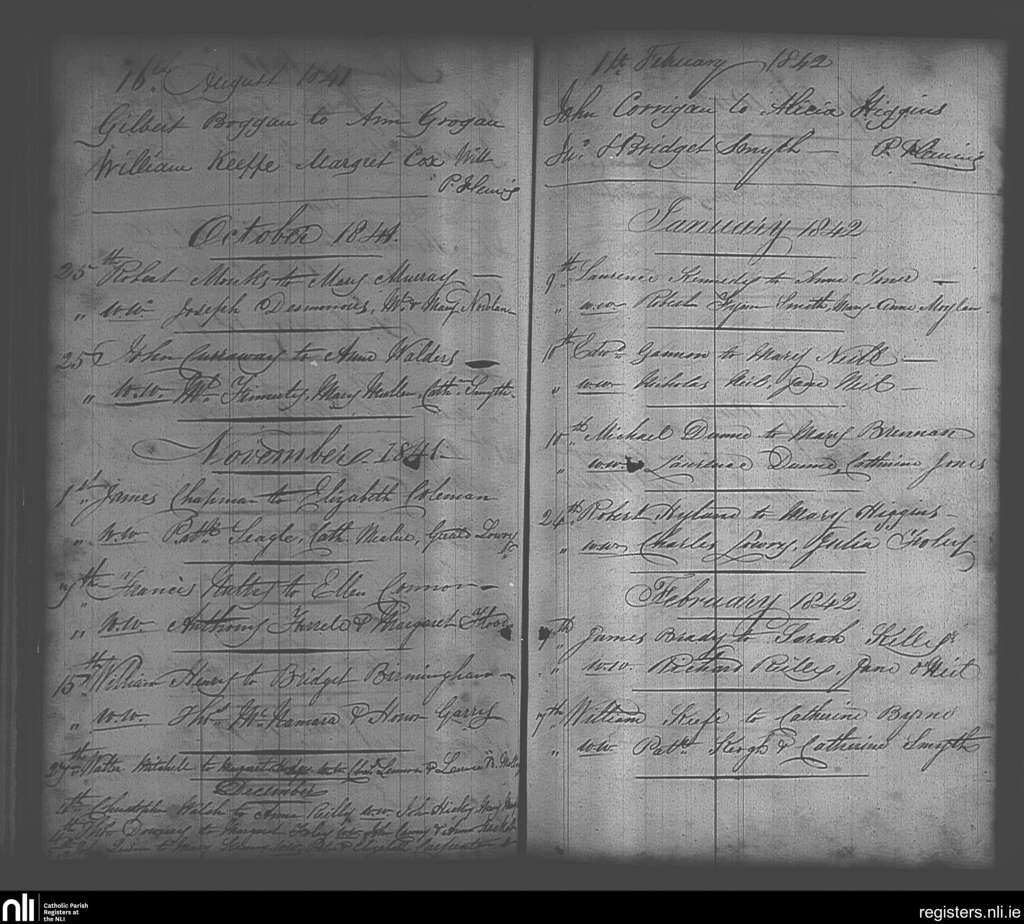 16th August 1841
Gilbert Boggan to Ann Grogan
William Keeffe Margret Cox Witt
P. Fleming
October 1841.
25th Robert Monks to Mary Murray —
„ w.w. Joseph Desmonous, Wm & Mary Nowlan
25 John Curraway to Anne Walders —
„ w.w. Wm. Finnerty, Mary Cath. Smyth
November 1841.
1st James Chapman to Elizabeth Coleman
„ w.w. Patk. Teagle, Cath. Lowry
Francis to Ellen Connor —
„ w.w. Anthony Farrel & Margaret
15th William Henry to Bridget Birmingham —
„ w.w. Thos. McNamara & Honor Garry
27th Walter Mitchell to Margaret w.w. Lennon &
December
Christopher Walsh to Anne Reilly w.w. John Hickey
Thos. to Margaret Foley w.w. John & Anne
to Mary & Elizabeth
11th February 1842
John Corrigan to Alicia Higgins
& Bridget Smyth — P. Fleming
January 1842
9th Laurence Kennedy to Anne —
„ w.w. Robert Smith, Mary Anne Moylan
10th Edwd. Gannon to Mary Neill —
„ w.w. Nicholas Neil, Jane Neil —
10th Michael Dunne to Mary Brennan
„ w.w. Laurence Dunne, Catherine Jones
24th Robert Hyland to Mary Higgins —
„ w.w. Charles Lowry, Julia Foley
February 1842.
7th James Brady to Sarah Kelly
„ w.w. Richard Rilly, Jane O'Neil
7th William Keefe to Catherine Byrne
„ w.w. Patk. Keogh & Catherine Smyth
nli
Catholic Parish
Registers at
the NLI
registers.nli.ie